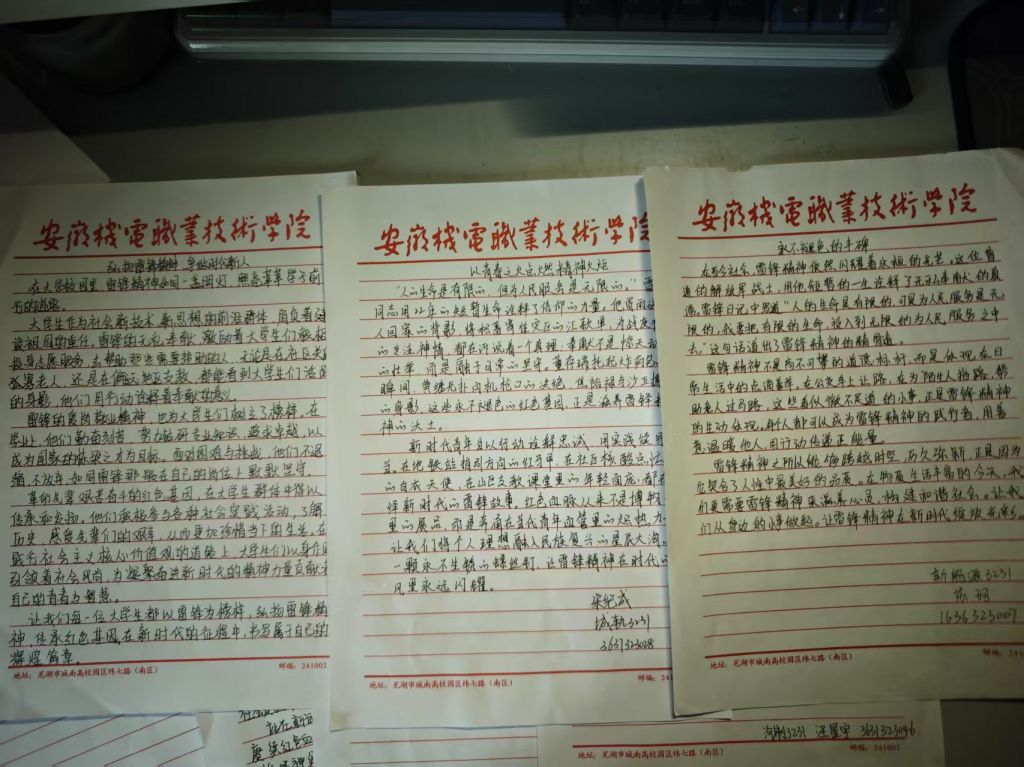 安徽機電職業技術學院
弘扬雷锋精神 争做时代新人
在大学校园里，雷锋精神如同一盏明灯，照亮莘莘学子前
行的道路。
大学生作为社会新技术、新思想的前沿群体，肩负着建
设祖国的重任，雷锋的无私奉献 激励着大学生们积极
投身志愿服务，去帮助那些需要帮助的人，无论是在社区关
孤寡老人，还是在偏远地区支教，都能看到大学生们
的身影，他们用行动诠释着奉献的意义。
雷锋的爱岗敬业精神，也为大学生们树立了榜样，在
学业上，他们勤奋刻苦，努力钻研专业知识，追求卓越，以
成为国家的栋梁之才为目标。面对困难与挑战，他们不退
缩，不放弃，如同雷锋那般在自己的岗位上默默坚守。
革命先辈艰苦奋斗的红色基因，在大学生群体中得以
传承和发扬，他们积极参与各种社会实践活动，了解
历史，感受先辈们的艰辛，从而更加珍惜当下的生活，在
践行社会主义核心价值观的道路上，大学生们以身作则
引领着社会风尚，为凝聚奋进新时代的精神力量贡献着
自己的青春与智慧。
让我们每一位大学生都以雷锋为榜样，弘扬雷锋精
神，传承红色基因，在新时代的征程中，书写属于自己的
辉煌篇章。
地址：芜湖市城南高校园区纬七路（南区） 邮编：241002
安徽機電職業技術學院
以青春之火点燃精神火炬
“人的生命是有限的，但为人民服务是无限的，”雷
同志用22年的短暂生命诠释了信仰的力量，他雪雨
人回家的背影，将积蓄寄往灾区的汇款单，
的专注神情，都在诉说着一个真理：奉献不是惊天动
的壮举，而是融于日常的坚守。董存瑞托起炸药包
瞬间，黄继光扑向机枪口的决绝，焦裕禄与沙丘搏
的身影，这些永不褪色的红色基因，正是滋养雷锋精
神的沃土。
新时代青年当以行动诠释忠诚，用实践绽放
在地铁站指引方向的红马甲，在社区核酸点
的白衣天使，在山区支教课堂里的年轻面庞，都在
绎新时代的雷锋故事，红色血脉从来不是博物
里的展品，而是奔涌在当代青年血管里的炽热
让我们将个人理想融入民族复兴的星辰大海
一颗永不生锈的螺丝钉，让雷锋精神在时代
风里永远闪耀。
城轨3231
3637323028
地址：芜湖市城南高校园区纬七路（南区） 邮编：241
安徽機電職業技術學院
永不褪色的丰碑
在当今社会，雷锋精神依然闪耀着永恒的光芒，这位普
通的解放军战士，用他短暂的一生诠释了无私奉献的真
谛，雷锋日记中写道“人的生命是有限的，可是为人民服务是无
限的，我要把有限的生命，投入到无限的为人民服务之中
去。”这句话道出了雷锋精神的精髓。
雷锋精神不是高不可攀的道德标杆，而是体现在日
常生活中的点滴善举，在公交车上让路，在为陌生人指路，帮
助老人过马路，这些看似微不足道的小事，正是雷锋精神
的生动体现，每个人都可以成为雷锋精神的践行者，用善
意温暖他人，用行动传递正能量。
雷锋精神之所以能够跨越时空，历久弥新，正是因为
它契合了人性中最美好的品质。在物质生活丰富的今天，我
们更需要雷锋精神来滋养心灵，构建和谐社会。让我
们从身边的小事做起，让雷锋精神在新时代绽放光彩。
3231
1636323007
地址：芜湖市城南高校园区纬七路（南区） 邮编：
3231 3631323046
地址：芜湖市城南高校园区纬七路（南区） 邮编：241002